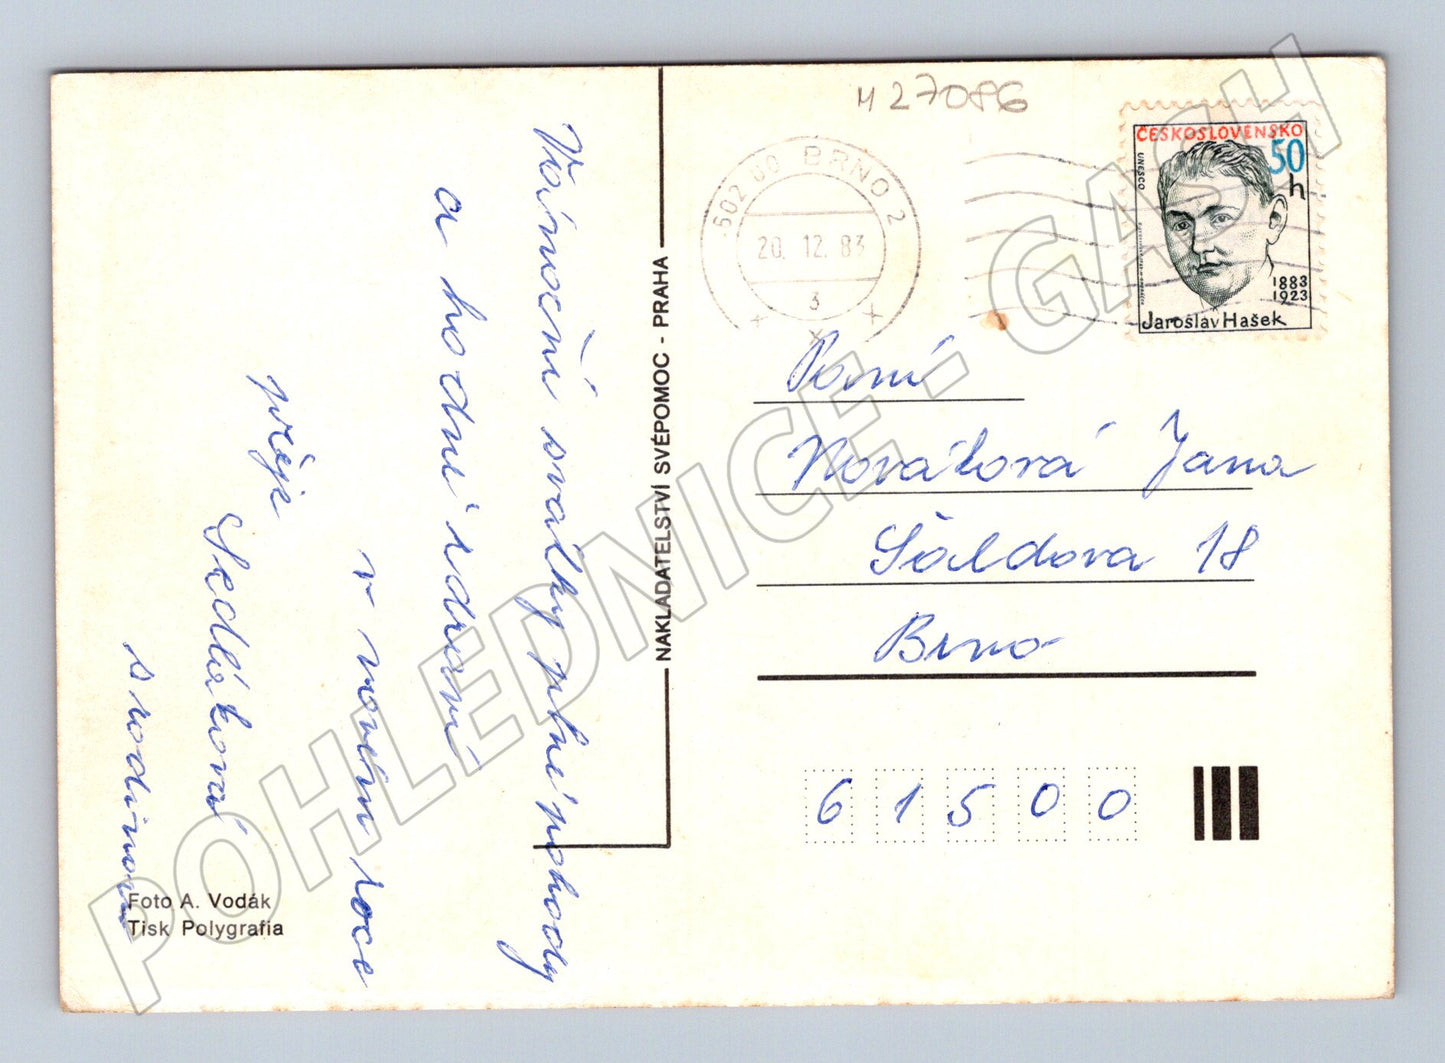 Vánoční svátky plné pohody
a hodně zdraví
v novém roce
přeje
Sedláková
s rodinou
Foto A. Vodák
Tisk Polygrafia
NAKLADATELSTVÍ SVÉPOMOC - PRAHA
M 27086
602 00 BRNO 2
20. 12. 83
3
ČESKOSLOVENSKO
50
h
UNESCO
1883
1923
Jaroslav Hašek
Paní
Nováková Jana
Šaldova 18
Brno
61500
POHLEDNICE - GASH